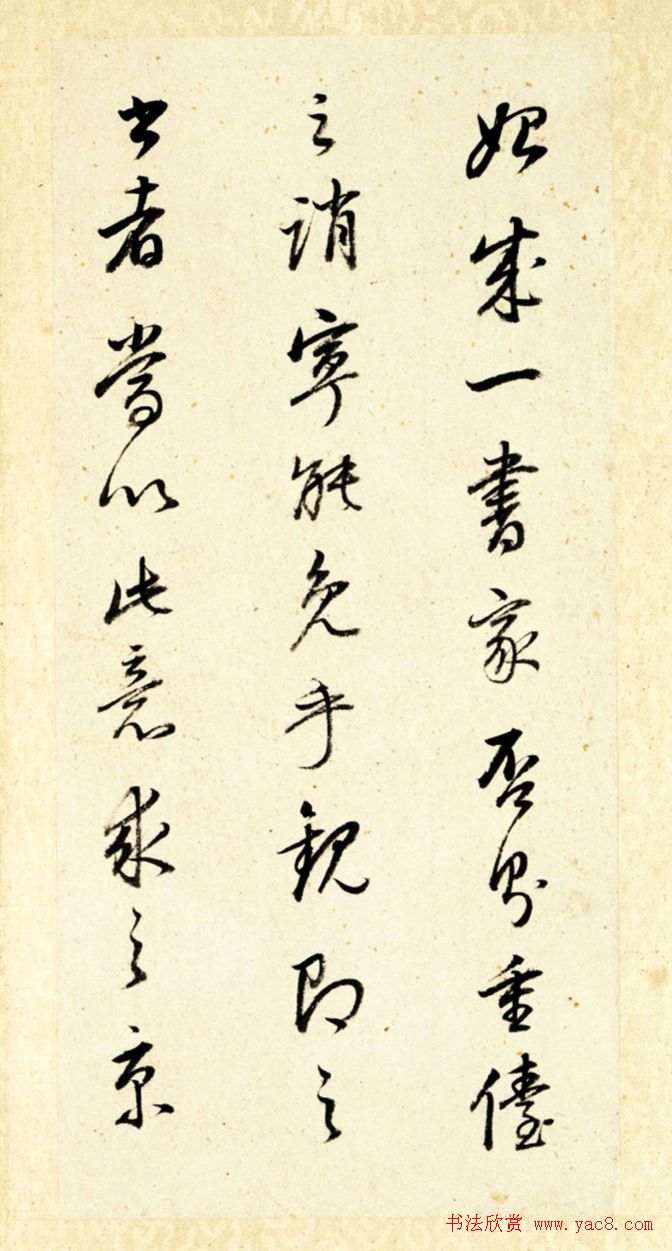 始成一書家否則重儓
之誚寧能免乎觀即之
書者當以此意求之京
书法欣赏 www.yac8.com